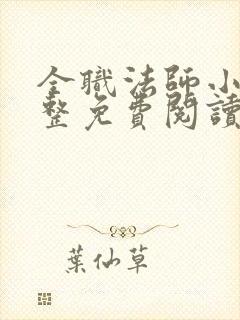 全職法師小
整免費閱讀
葉仙草